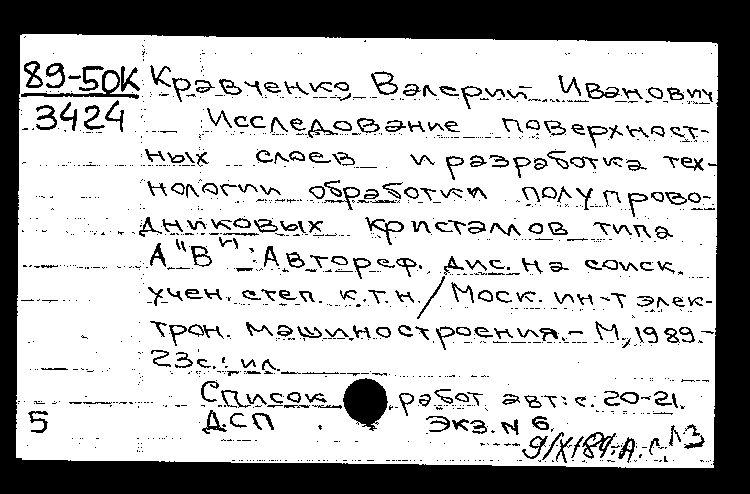 89-50К Кравченко, Валерий Иванович
3424 Исследование поверхност-
ных слоев и разработка тех-
нологии обработки полупрово-
дниковых кристаллов типа
А"В"": Автореф. дис. на соиск.
учен. степ. к.т.н. / Моск. ин-т элек-
трон. машиностроения. - М, 1989. -
23с.: ил
Список работ авт: с. 20-21.
5 ДСП . Экз. N 6.